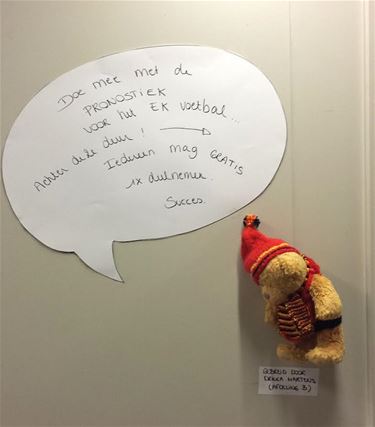 Doe mee met de
PRONOSTIEK
voor het EK voetbal...
Achter deze deur! →
Iedereen mag GRATIS
1x deelnemen.
Succes.
GEBREID DOOR
MARTENS
(AFDELING 3)